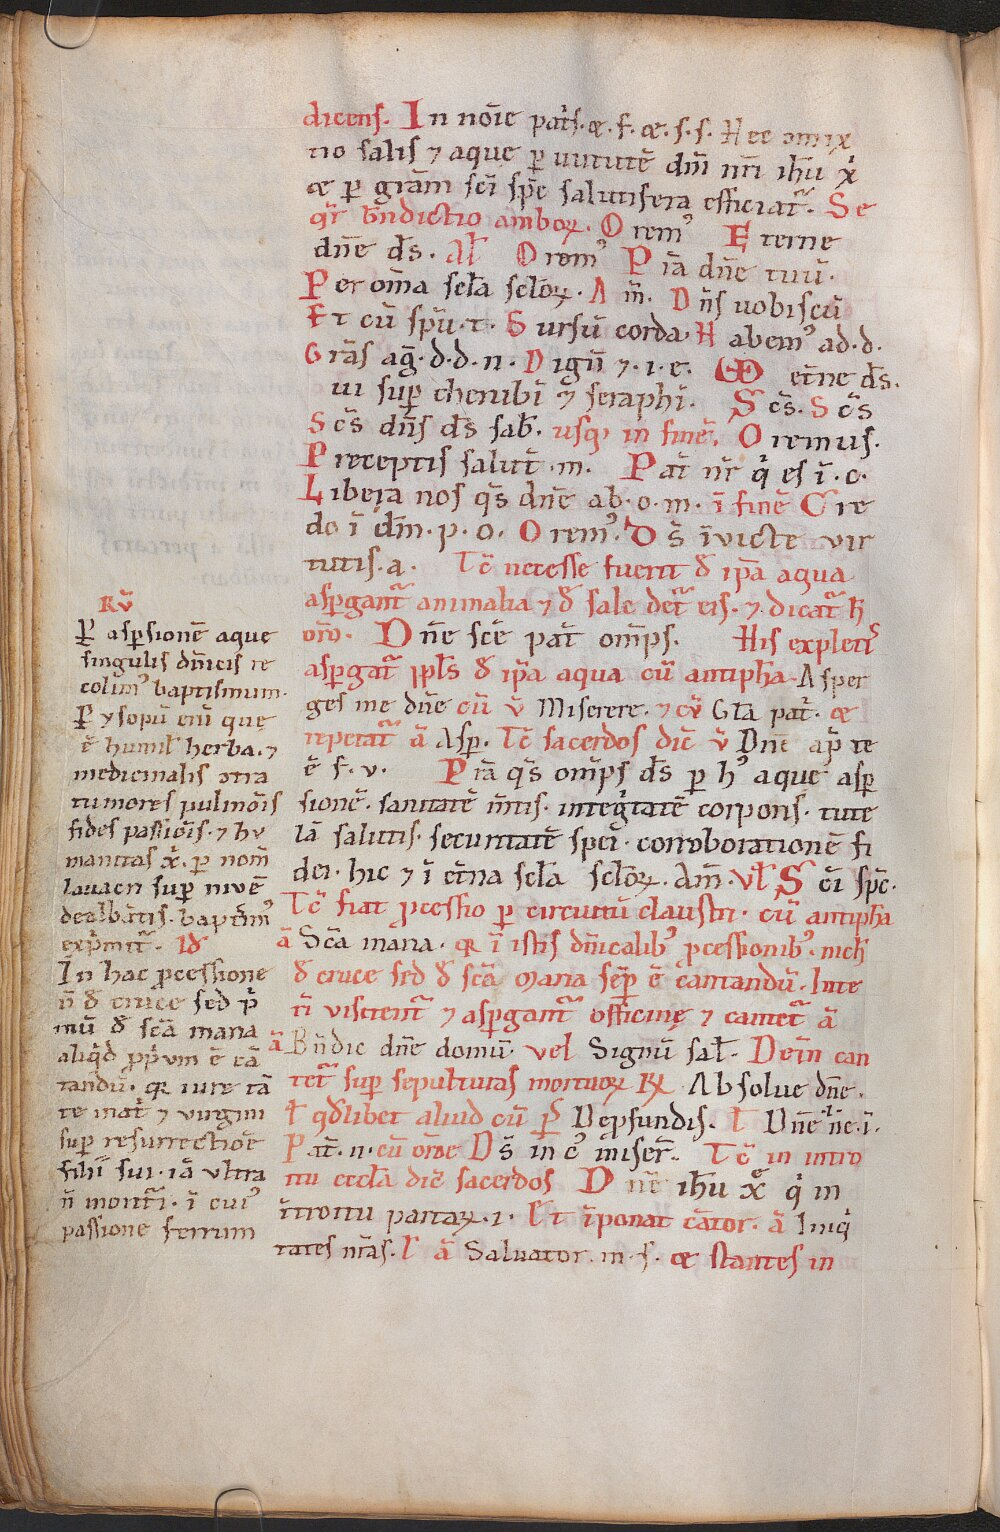 dicens. In nōie pat̄s. &. f. &. s. s. Hec ōmix
tio salis ⁊ aque ꝑ uirtutē dn̄i nr̄i ih̄u x̄
& ꝑ grām sc̄i sp̄c salutifera efficiat᷑. Se
q̄r bn̄dictio amboꝝ. Orem᷒ Eterne
dn̄e ds̄. Al̄ Orem᷒ P̄ia dn̄e tuū.
Per om̄a scl̄a scl̄oꝝ. Am̄. Dn̄s uobiscū
Et cū spū. t. Sursū corda. Habem᷒ ad. d.
Grās aḡ. d. d. n. Dignū ⁊. i. e. et̄ne ds̄.
ui suꝑ cherubī ⁊ seraphī. Sc̄s. Sc̄s
Sc̄s dn̄s ds̄ sab̄. usq; in finē. Oremus.
Preceptis salut̄. m. Pat̄ nr̄ q̄ es ī. c.
Libera nos qs̄ dn̄e ab. o. m. ī finē Cre
do ī dm̄. p. o. Orem᷒. Ds̄ īuicte uir
tutis. a. Tc̄ necesse fuerit ꝺ ip̄a aqua
asꝑgant᷑ animalia ⁊ ꝺ sale det᷑ eis. ⁊ dicat᷑ h̄
oro. Dn̄e sc̄e pat̄ omp̄s. His expletis
asꝑgat᷑ ppl̄s ꝺ ip̄a aqua cū antiph̄a. Asper
ges me dn̄e cū v̄ Miserere. ⁊ cū Gl̄a pat̄. &
repetat᷑ ā Asꝑ. Tc̄ sacerdos dic̄ v̄ Dn̄e ap̄ te
ē f. v. P̄ia qs̄ omp̄s ds̄ ꝑ h᷒ aque asꝑ
sionē. sanitatē m̄tis. integritatē corporis. tute
lā salutis. securitatē spei. corroborationē fi
dei. hic ⁊ ī et̄na scl̄a scl̄oꝝ. Am̄. vl̄ Sc̄i sp̄c.
Tc̄ fiat ꝓcessio ꝑ circuitū claustri. cū antipha
ā Sc̄a maria. qꝛ ī istis dn̄icalib᷒ ꝓcessionib᷒. nich̄
ꝺ cruce sed ꝺ sc̄a maria seꝑ ē cantandū. Inte
rī visitent᷑ ⁊ asꝑgant᷑ officinę ⁊ cantet᷑ ā
ā Bn̄dic dn̄e domū. vel Signū sal̄. Dein can
tet᷑ suꝑ sepulturas mortuoꝝ ℟ Absolue dn̄e.
ł qd̄libet aliud cū ps̄ Deꝓfundis. ł Dn̄e ne. i.
Pat̄. n. cū orōe Ds̄ in c᷒ miser̄. Tc̄ in intro
itu eccl̄a dic̄ sacerdos Dn̄e ih̄u x̄ q̄ in
ītroitu portaꝝ. i. Et īponat cātor. ā Iniq̄
tates nr̄as. ł ā Saluator. m. f. & stantes in
Rū
Ꝑ asꝑsionē aque
singulis dn̄icis re
colim᷒ baptismum.
P ysopū enī que
ē humil̄ herba. ⁊
medicinalis ↄtra
tumores pulmōis
fides passiōis. ⁊ hu
manitas x̄. ꝑ nom̄
lauacri suꝑ niuē
dealbātis. baptism᷒
exp̄mit᷑. Id̄
In hac ꝓcessione
n̄ ꝺ cruce sed p̄
mū ꝺ sc̄a maria
aliq̄d ꝓprium ē cā
tandū. qꝛ iure tā
te mat̄ ⁊ uirgini
suꝑ resurrectiōe
filii sui. iā ultra
n̄ morit᷑i. ī cui᷒
passione ferrum